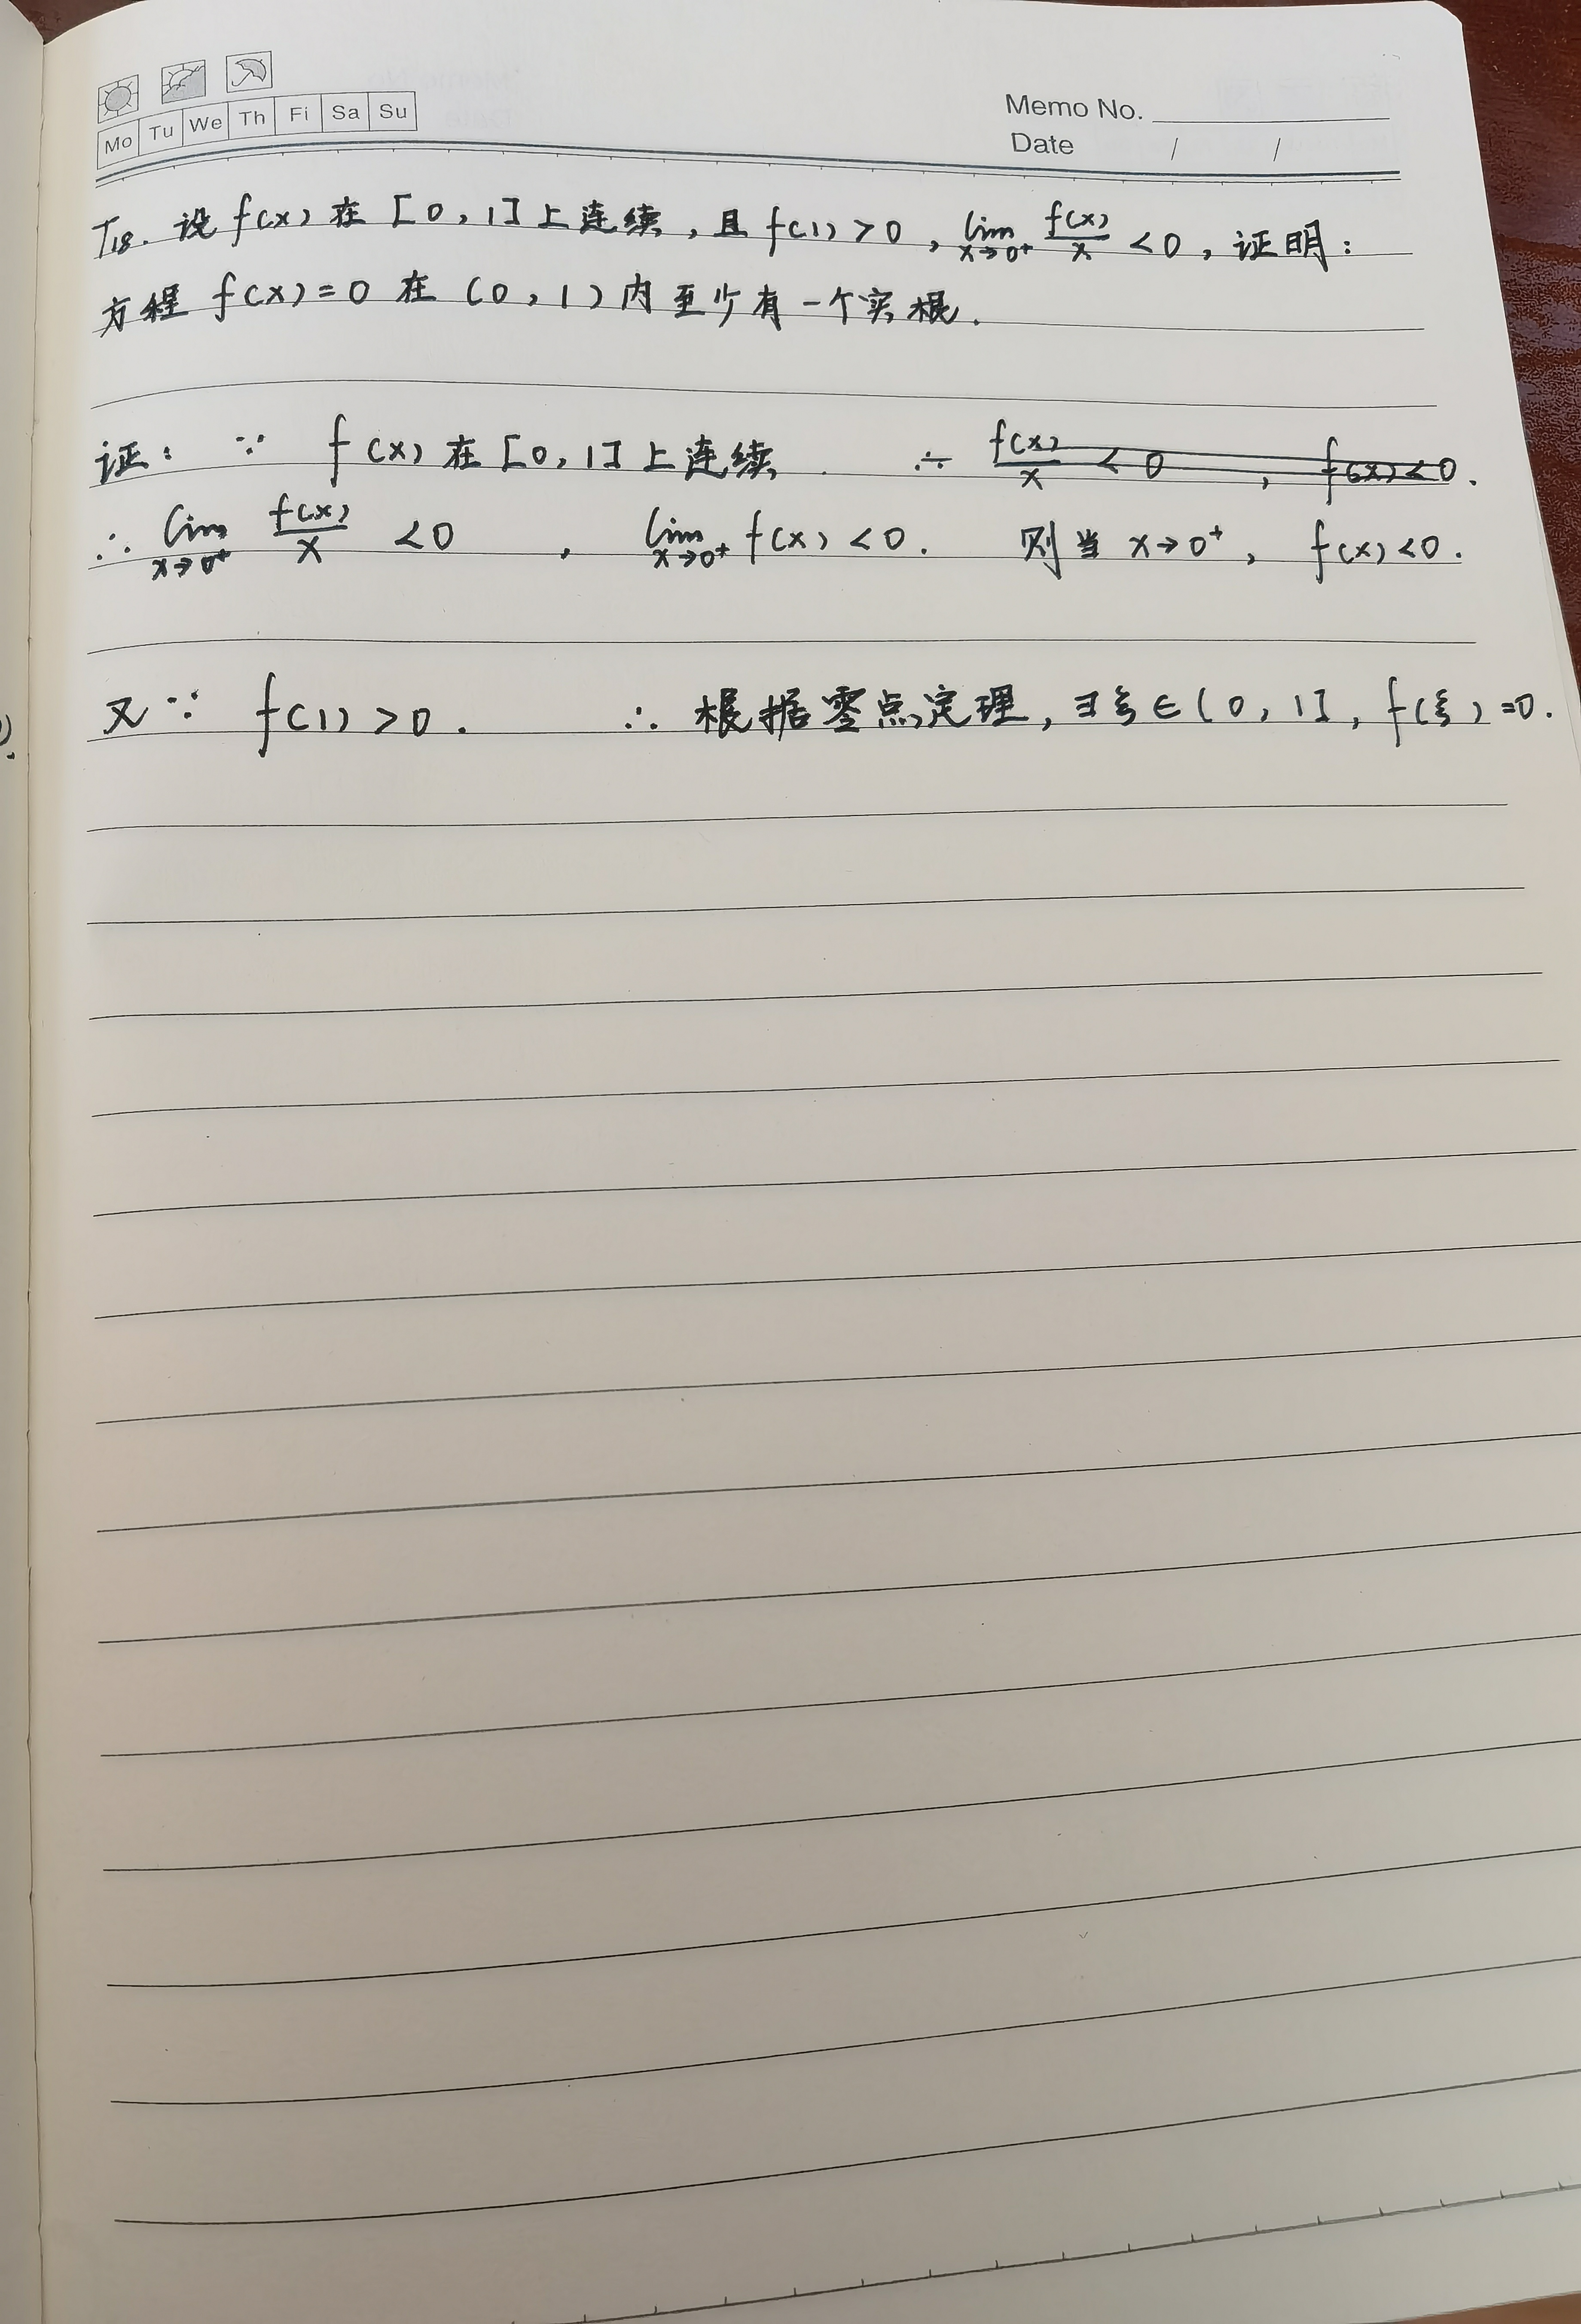 Mo Tu We Th Fi Sa Su
Memo No.
Date / /
T18. 设 f(x) 在 [0,1] 上连续,且 f(1)>0, lim x→0⁺ f(x)/x <0,证明:
方程 f(x)=0 在 (0,1) 内至少有一个实根.
证: ∵ f(x) 在 [0,1] 上连续 ∴ f(x)/x <0 , f(x)<0.
∴ lim x→0⁺ f(x)/x <0 , lim x→0⁺ f(x)<0. 则当 x→0⁺, f(x)<0.
又∵ f(1)>0. ∴ 根据零点定理,∃ξ∈(0,1],f(ξ)=0.